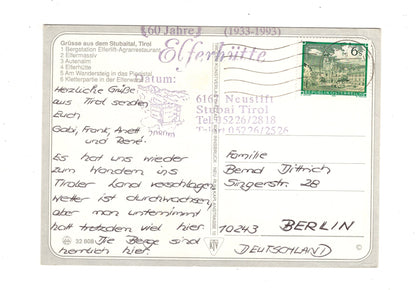 60 Jahre (1933-1993)
Elferhütte
Grüsse aus dem Stubaital, Tirol
1 Bergstation Elferlift-Agrarrestaurant
2 Elfermassiv
3 Autenalm
4 Elferhütte
5 Am Wandersteig in das Pinnistal
6 Kletterpartie in der Elfer
Datum:
6167 Neustift
Stubai Tirol
Tel. 05226/2818
Telefax 05226/2526
2080m
6 S
REPUBLIK ÖSTERREICH
Herzliche Grüße
aus Tirol senden
Euch
Gabi, Frank, Anett
und René.
Es hat uns wieder
zum Wandern ins
Tiroler Land verschlagen.
Wetter ist durchwachsen,
aber man unternimmt
halt trotzdem viel hier.
Die Berge sind
herrlich hier.
33 808
Familie
Bernd Dittrich
Singerstr. 28
10243 BERLIN
DEUTSCHLAND
©